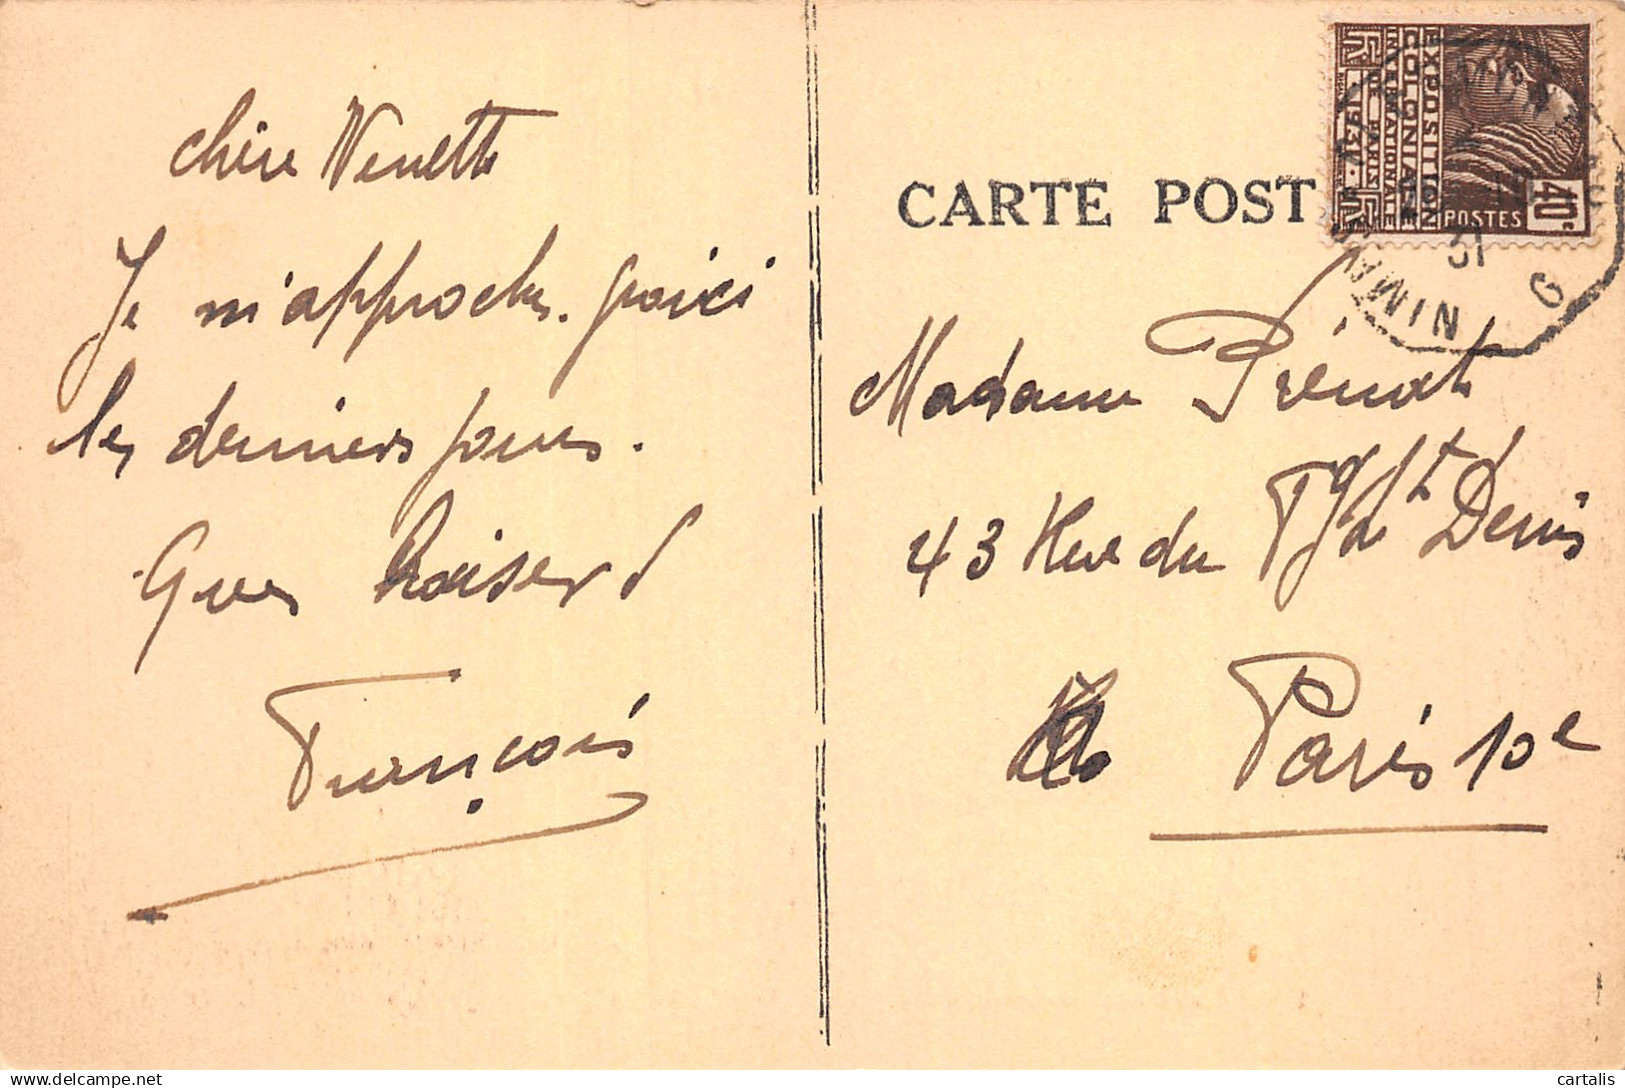 chère Nenette
Je m'approche. voici
les derniers jours.
Gros baisers
François
CARTE POST
EXPOSITION
COLONIALE
INTERNATIONALE
DE PARIS
1931
RF
RF
POSTES
40c
31
NIM
G
Madame Prénat
43 Rue du Fg St Denis
Paris 10e
www.delcampe.net
cartalis